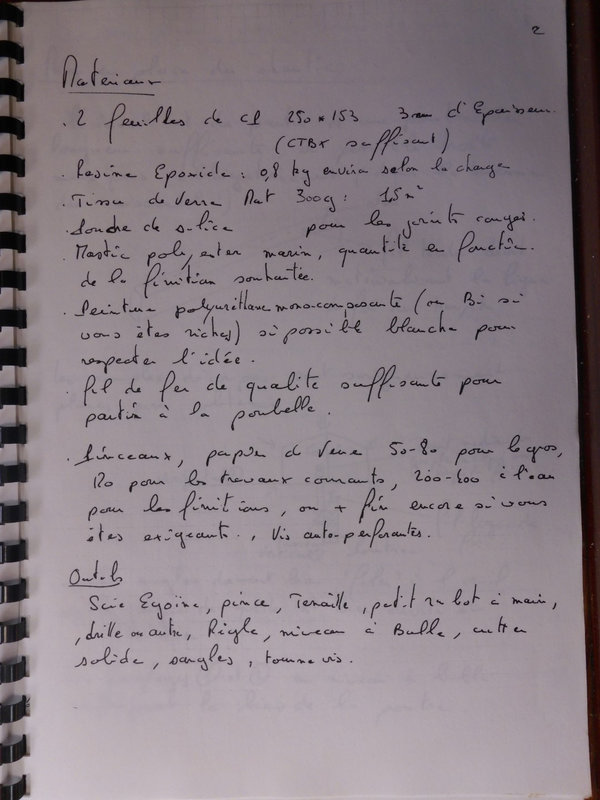 2
Materiaux
. 2 feuilles de CP 250 * 153 3 mm d'Epaisseur.
(CTBX suffisant)
. Resine Epoxide : 0,8 kg environ selon la charge
. Tissu de verre Mat 300g : 1,5 m²
. Poudre de silice pour les joints congés.
. Mastic polyester marin, quantité en fonction
de la finition souhaitée.
. Peinture polyuréthane monocomposante (ou Bi si
vous êtes riches) si possible blanche pour
respecter l'idée.
. fil de fer de qualité suffisante pour
partir à la poubelle.
. Pinceaux, papier de verre 50-80 pour le gros,
120 pour les travaux courants, 200-400 à l'eau
pour les finitions, ou + fin encore si vous
êtes exigeants. , Vis auto-perforantes.
Outils
Scie Egoïne, pince, Tenaille, petit rabot à main,
, drille ou autre, Règle, niveau à Bulle, cutter
solide, sangles, tournevis.